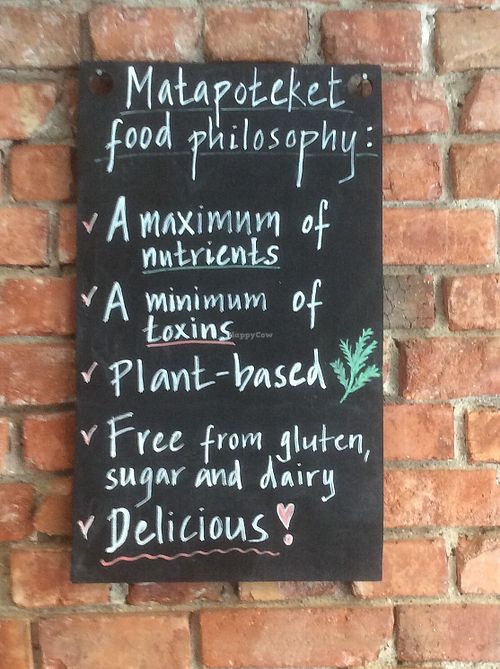 Matapoteket
food philosophy:
✓ A maximum of
nutrients
✓ A minimum of
toxins
HappyCow
✓ Plant-based
✓ Free from gluten,
sugar and dairy
✓ Delicious!